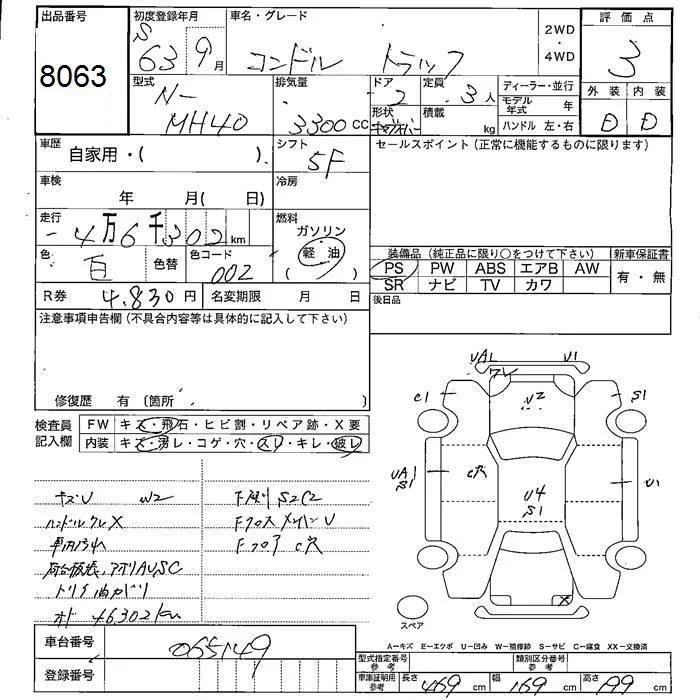 出品番号
8063
初度登録年月
S 63 9月
車名・グレード
コンドル トラック
2WD
・
4WD
評価点
3
外装 内装
D D
型式
N-
MH40
排気量
3300 cc
ドア
2
形状
キャブオーバー
定員
3人
積載
kg
ディーラー・並行
モデル年式 年
ハンドル 左・右
車歴
自家用・( ).
シフト
5F
セールスポイント(正常に機能するものに限ります)
車検
年 月( 日)
冷房
走行
4万6千302 km
燃料
ガソリン
軽油
( )
色
白
色替
色コード
002
装備品(純正品に限り○をつけて下さい)
PS PW ABS エアB AW
SR ナビ TV カワ
新車保証書
有・無
R券 4.830円
名変期限 月 日
後日品
注意事項申告欄(不具合内容等は具体的に記入して下さい)
修復歴 有 〔箇所 〕
検査員
記入欄
FW キズ・飛石・ヒビ割・リペア跡・X要
内装 キズ・汚レ・コゲ・穴・スレ・キレ・破レ
キズU W2
ハンドルスレX
車内汚れ
荷台板張、アオリAU,SC
オド 46302km
下廻り S2C2
Fクロスメンバー U
Fフロア C穴
UA1 U1
ワレ
C1 U2 S1
UA1
S1
C穴
U4
S1
U1
X
スペア
A-キズ E-エクボ U-凹み W-補修跡 S-サビ C-腐食 XX-交換済
車台番号 065149
登録番号
型式指定番号
参考
類別区分番号
参考
車庫証明用
参考
長さ 469 cm 幅 169 cm 高さ 199 cm